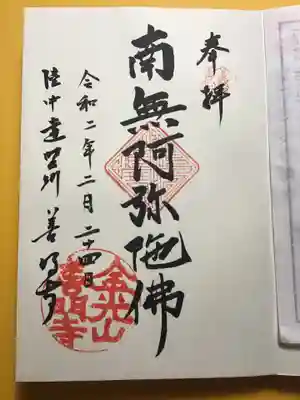 奉拝
南無阿弥陀佛
令和二年二月二十四日
陸中遠野 善明寺
金光山
善明寺